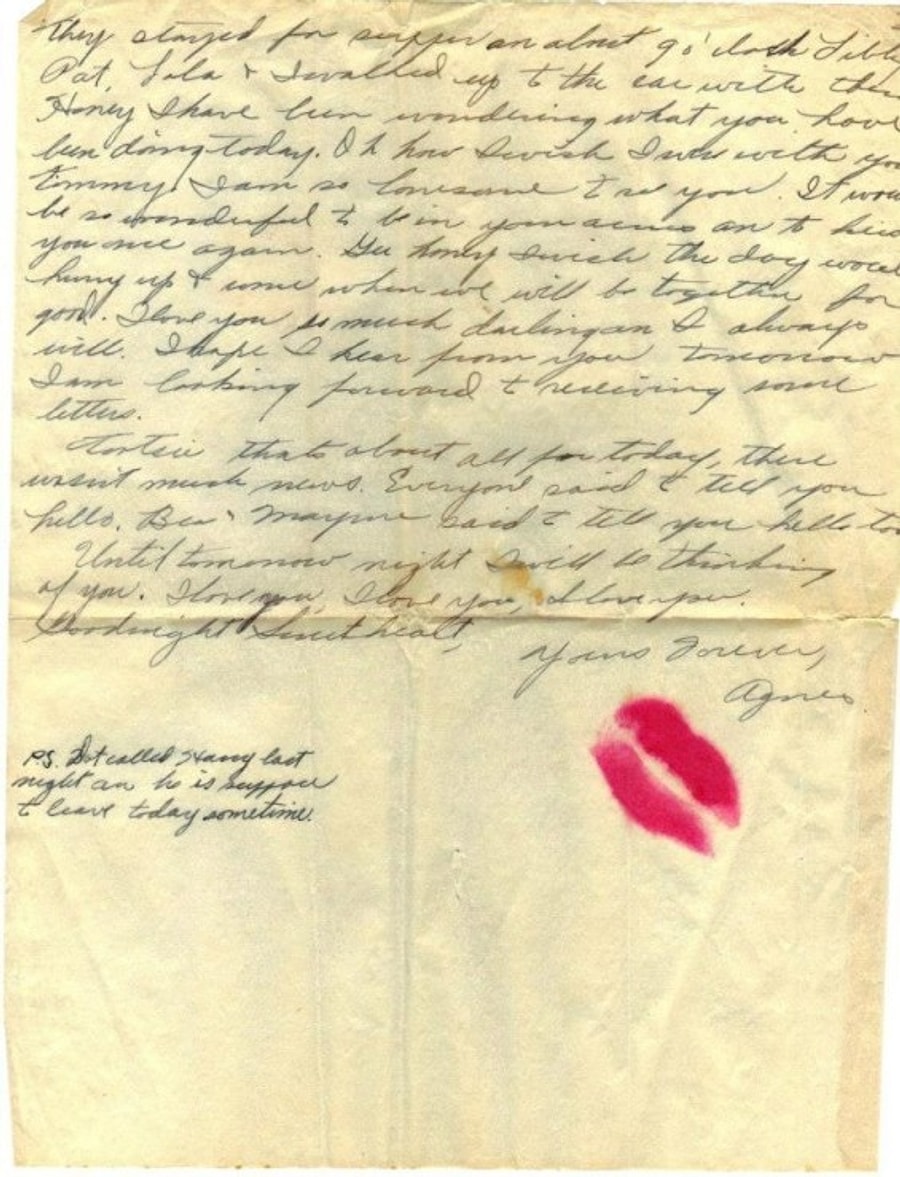 they stayed for supper an about 9 o'clock Libby
Pat, Lila & I walked up to the car with them
Honey I have been wondering what you have
been doing today. Oh how I wish I was with you
tommy. I am so lonesome to see you. It would
be so wonderful to be in your arms an to kiss
you once again. Gee honey I wish the day would
hurry up & come when we will be together for
good. I love you so much darling an I always
will. I hope I hear from you tomorrow
I am looking forward to receiving some
letters.
Tootsie thats about all for today, there
wasn't much news. Everyone said to tell you
hello. Bea & Mayme said to tell you hello too
Until tomorrow night I will be thinking
of you. I love you, I love you, I love you.
Goodnight Sweetheart,
Yours Forever,
Agnes.
PS. Dot called Harry last
night an he is suppose
to leave today sometime.